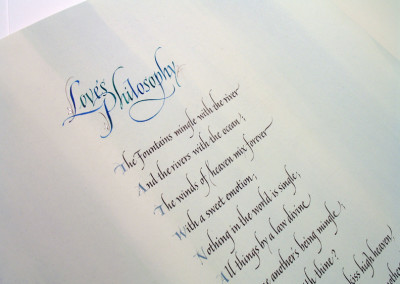 Love's Philosophy
The Fountains mingle with the river
And the rivers with the ocean;
The winds of heaven mix forever
With a sweet emotion;
Nothing in the world is single;
All things by a law divine
another's being mingle;
thine?
kiss high heaven,